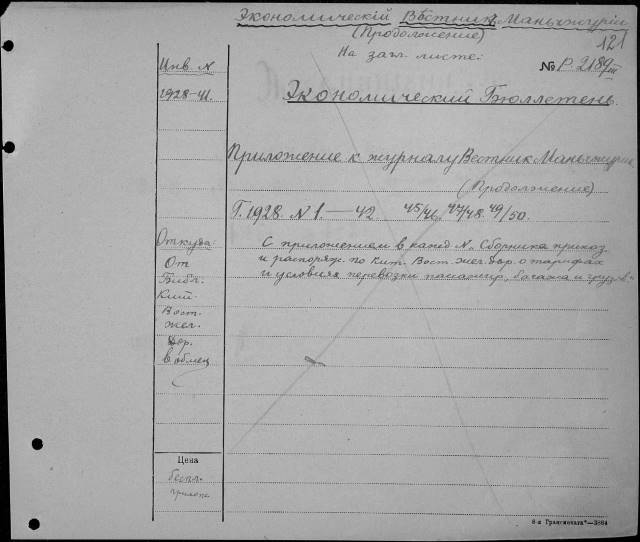 Экономическій Вѣстник Маньчжуріи
(Продолжение)
121
На загл. листе:
№ Р. 2189 III
Инв. №
1928-41.
Экономический Бюллетень.
Приложение к журналу Вестник Маньчжурии
(Продолжение)
Г. 1928. N 1. — 42 45/46, 47/48. 49/50.
Откуда:
От
Библ.
Кит.
Вост.
жел.
дор.
в обмен
С приложением в кажд. №. Сборника приказ.
и распоряж. по Кит. Вост. жел. дор. о тарифах
и условиях перевозки пассажир., багажа и грузов.
Цена
беспл.
прилож.
6-я Гранкомхата*—3864